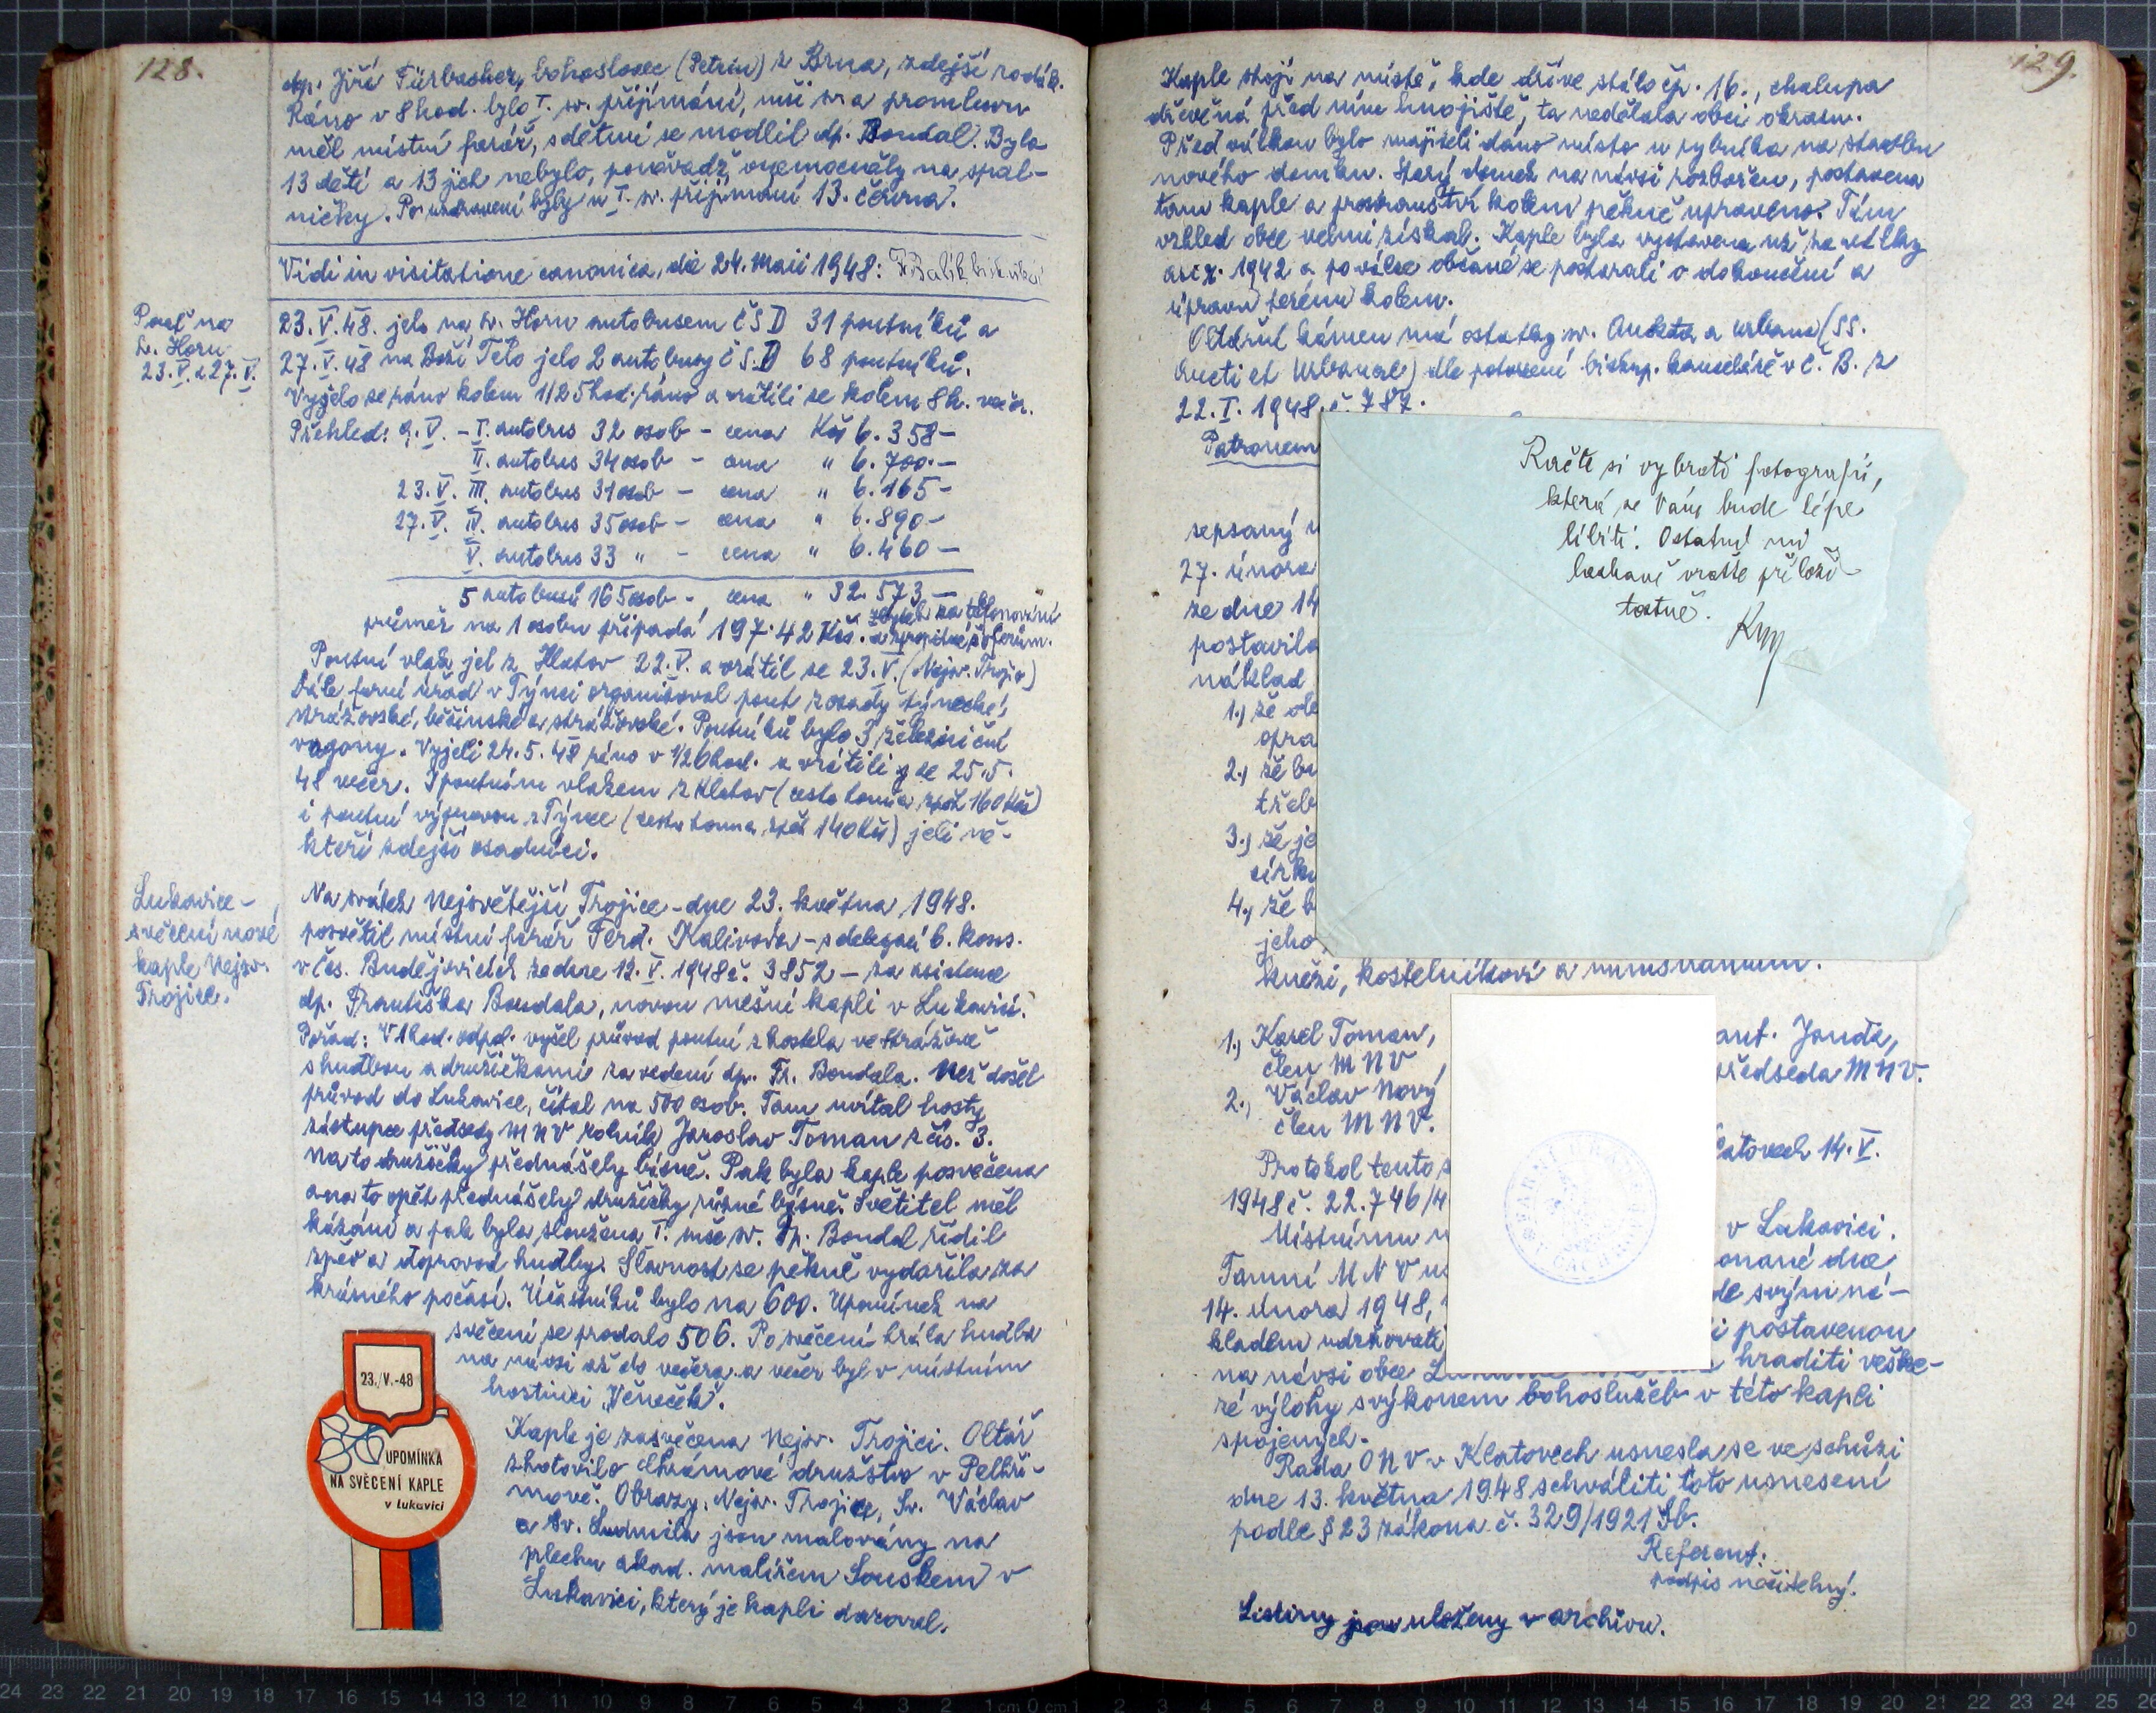 128.
dp. Jiří Fürbacher, bohoslovec (Petrin) z Brna, zdejší rodák.
Ráno v 8 hod. bylo I. sv. přijímání, mši sv. a promluvu
měl místní farář, s dětmi se modlil dp. Boudal. Bylo
13 dětí a 13 jich nebylo, poněvadž onemocněly na spal-
ničky. Po uzdravení byly u I. sv. přijímání 13. června.
Vidi in visitatione canonica, die 24. Maii 1948:
Pouť na
Sv. Horu
23.V. a 27.V.
23.V.48. jelo na sv. Horu autobusem ČSD 31 poutníků a
27.V.48 na Boží Tělo jelo 2 autobusy ČSD 68 poutníků.
Vyjelo se ráno kolem 1/2 5 hod. ráno a vrátili se kolem 8 h. več.
Přehled: 9.V. - I. autobus 32 osob - cena Kčs 6.358-
II. autobus 34 osob - cena " 6.700.-
23.V. III. autobus 31 osob - cena " 6.165-
27.V. IV. autobus 35 osob - cena " 6.890-
V. autobus 33 " - cena " 6.460-
5 autobusů 165 osob - cena " 32.573-
průměr na 1 osobu připadá 197.42 Kčs. zbytek na telefonování
a zpropitné šoferům.
Poutní vlak jel z Klatov 22.V. a vrátil se 23.V. (Nejsv. Trojice)
Dále farní úřad v Týnci organisoval pouť z osady týnecké,
strážovské, běšinské a strážovské. Poutníků bylo 3 železniční
vagony. Vyjeli 24.5.48 ráno v 1/2 6 hod. a vrátili se 25.5.
48 večer. I poutním vlakem z Klatov (cesta tam a zpět 160 Kčs)
i poutní výpravou z Týnce (cesta tam a zpět 140 Kčs) jeli ně-
kteří zdejší osadníci.
Lukavice -
svěcení nové
kaple Nejsv.
Trojice.
Na svátek Nejsvětější Trojice - dne 23. května 1948.
posvětil místní farář Ferd. Kalivoda - s delegací b. kons.
v Čes. Budějovicích ze dne 12.V.1948 č. 3852 - za asistence
dp. Františka Boudala, novou mešní kapli v Lukavici.
Pořad: V 1 hod. odpol. vyšel průvod poutní z kostela ve Strážově
s hudbou a družičkami za vedení dp. Fr. Boudala. Než došel
průvod do Lukavice, čítal na 500 osob. Tam uvítal hosty
zástupce předsedy MNV rolník Jaroslav Toman z čís. 3.
Na to družičky přednášely básně. Pak byla kaple posvěcena
a na to opět přednášely družičky různé básně. Světitel měl
kázání a pak byla sloužena I. mše sv. Dp. Boudal řídil
zpěv a doprovod hudby. Slavnost se pěkně vydařila za
krásného počasí. Účastníků bylo na 600. Upomínek na
svěcení se prodalo 506. Po svěcení hrála hudba
na návsi až do večera a večer byl v místním
hostinci „Věneček“.
Kaple je zasvěcena Nejsv. Trojici. Oltář
zhotovilo chrámové družstvo v Pelhři-
mově. Obrazy: Nejsv. Trojice, Sv. Václav
a Sv. Ludmila jsou malovány na
plechu akad. malířem Souskem v
Lukavici, který je kapli daroval.
23./V.-48
UPOMÍNKA
NA SVĚCENÍ KAPLE
v Lukavici
129.
Kaple stojí na místě, kde dříve stálo čp. 16., chalupa
dřevěná před ním hnojiště, ta nedělala obci okrasu.
Před válkou bylo majiteli dáno místo u rybníka na stavbu
nového domku. Starý domek na návsi rozbořen, postavena
tam kaple a prostranství kolem pěkně upraveno. Tím
vzhled obce velmi získal. Kaple byla vystavena už za války
asi r. 1942 a po válce občané se postarali o dokončení a
úpravu terénu kolem.
Oltářní kámen má ostatky sv. Aukta a Urbana (SS.
Aucti et Urbanae) dle potvrzení biskup. konsistoře v Č. B. z
22.I.1948 č. 787.
Patronem
sepsaný
27. února
ze dne 14
postavila
náklad
1.) že
opra
2.) že
třeb
3.) že je
círk
4.) že b
jeho
knězi, kostelníkovi a ministrantům.
Račte si vybrati fotografii,
která se Vám bude lépe
líbiti. Ostatní mi
laskavě vraťte příleži-
tostně.
1.) Karel Toman,
člen MNV
2.) Václav Nový
člen MNV.
ant. Janda,
předseda MNV.
Protokol tento
latovech 14.V.
1948 č. 22.746/4
Místnímu
v Lukavici.
Tamní MNV
onané dne
14. února 1948,
de svým ná-
kladem udržovati
i postavenou
na návsi obce
hraditi veške-
ré výlohy s výkonem bohoslužeb v této kapli
spojených.
Rada ONV v Klatovech usnesla se ve schůzi
dne 13. května 1948 schváliti toto usnesení
podle § 23 zákona č. 329/1921 Sb.
Referent:
podpis nečitelný.
Listiny jsou uloženy v archivu.